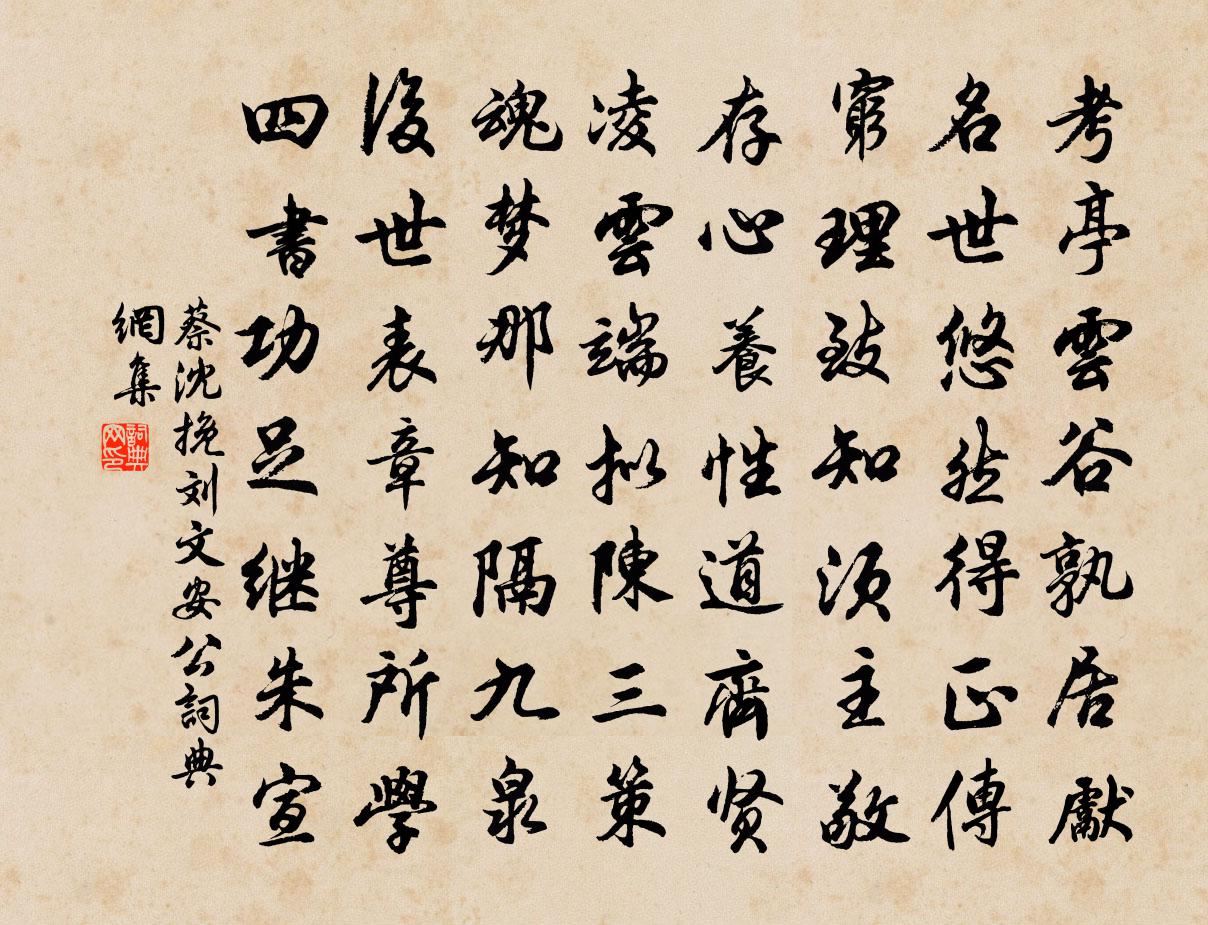 考亭雲谷孰居獻
名世悠然得正傳
窮理致知須主敬
存心養性道齊贤
凌雲端拟陳三策
魂梦那知隔九泉
後世表章尊所學
四書功足继朱宣
蔡沈挽刘文安公詞典
網集
詞典
网印